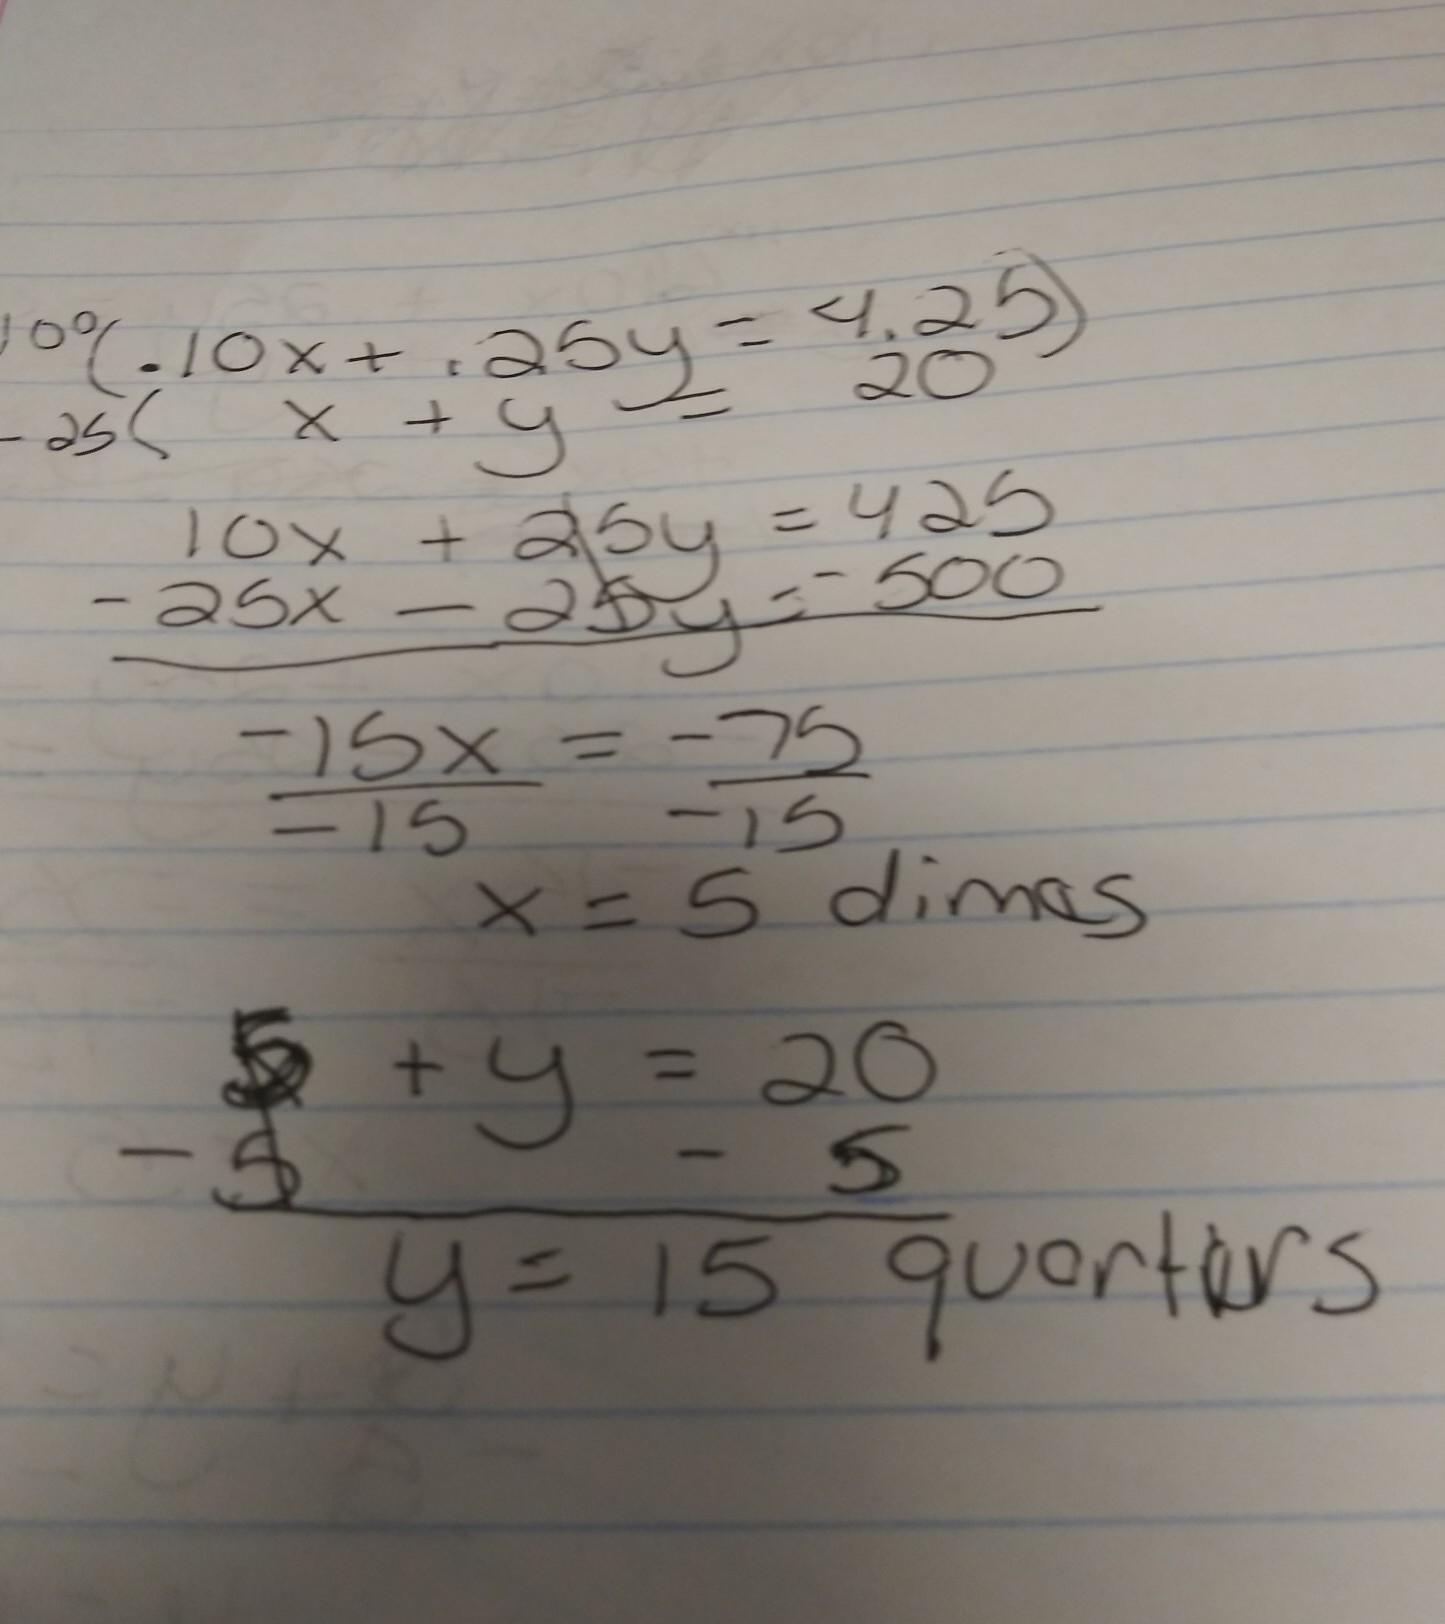 100(.10x + .25y = 4.25)
-25( x + y = 20
10x + 25y = 425
-25x - 25y = -500
-15x = -75
-15 -15
x = 5 dimes
5 + y = 20
- 5 - 5
y = 15 quarters